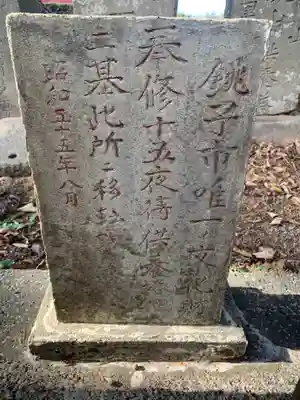 銚子市唯一文献
一、奉修十五夜待供養
二基此所ニ移転
昭和五十五年八月